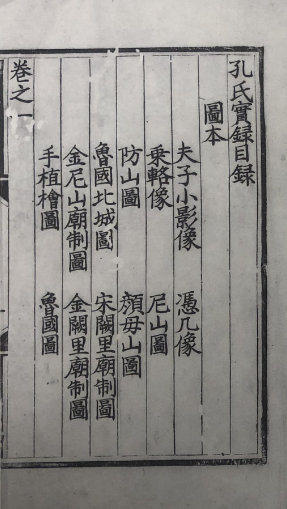 孔氏實録目録
圖本
夫子小影像 憑几像
乘輅像 尼山圖
防山圖 顔母山圖
魯國北城圖 宋闕里廟制圖
金尼山廟制圖 金闕里廟制圖
手植檜圖 魯國圖
卷之一